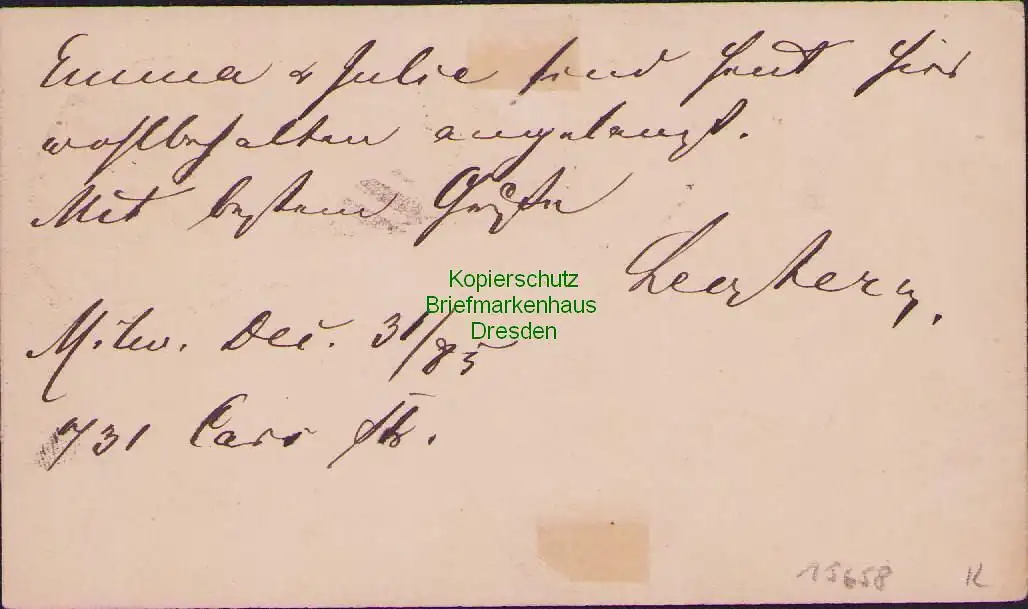 Emma & Julie sind heut hier
wohlbehalten angelangt.
Mit bestem Gruße
Kopierschutz
Briefmarkenhaus
Dresden
Milw. Dec. 31/85
731 Cass Str.
15658 K